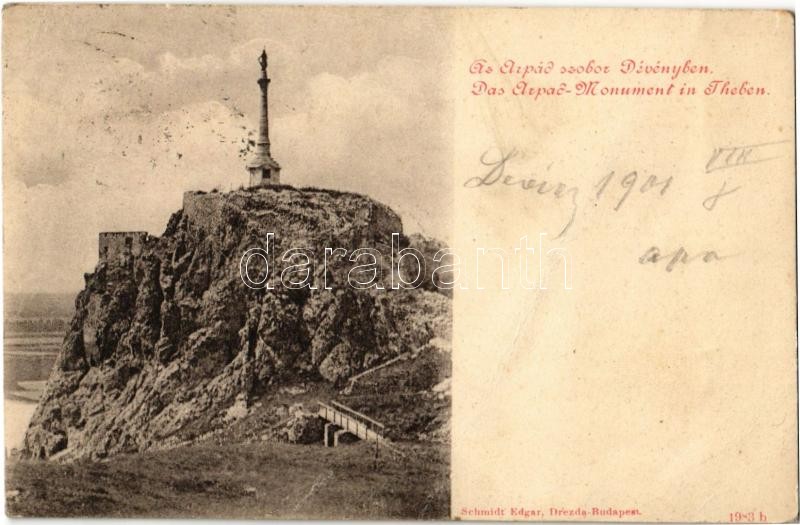 Az Árpád szobor Dévényben.
Das Arpad-Monument in Theben.
1901 VIII
8
apa
darabanth
Schmidt Edgar, Drezda-Budapest.